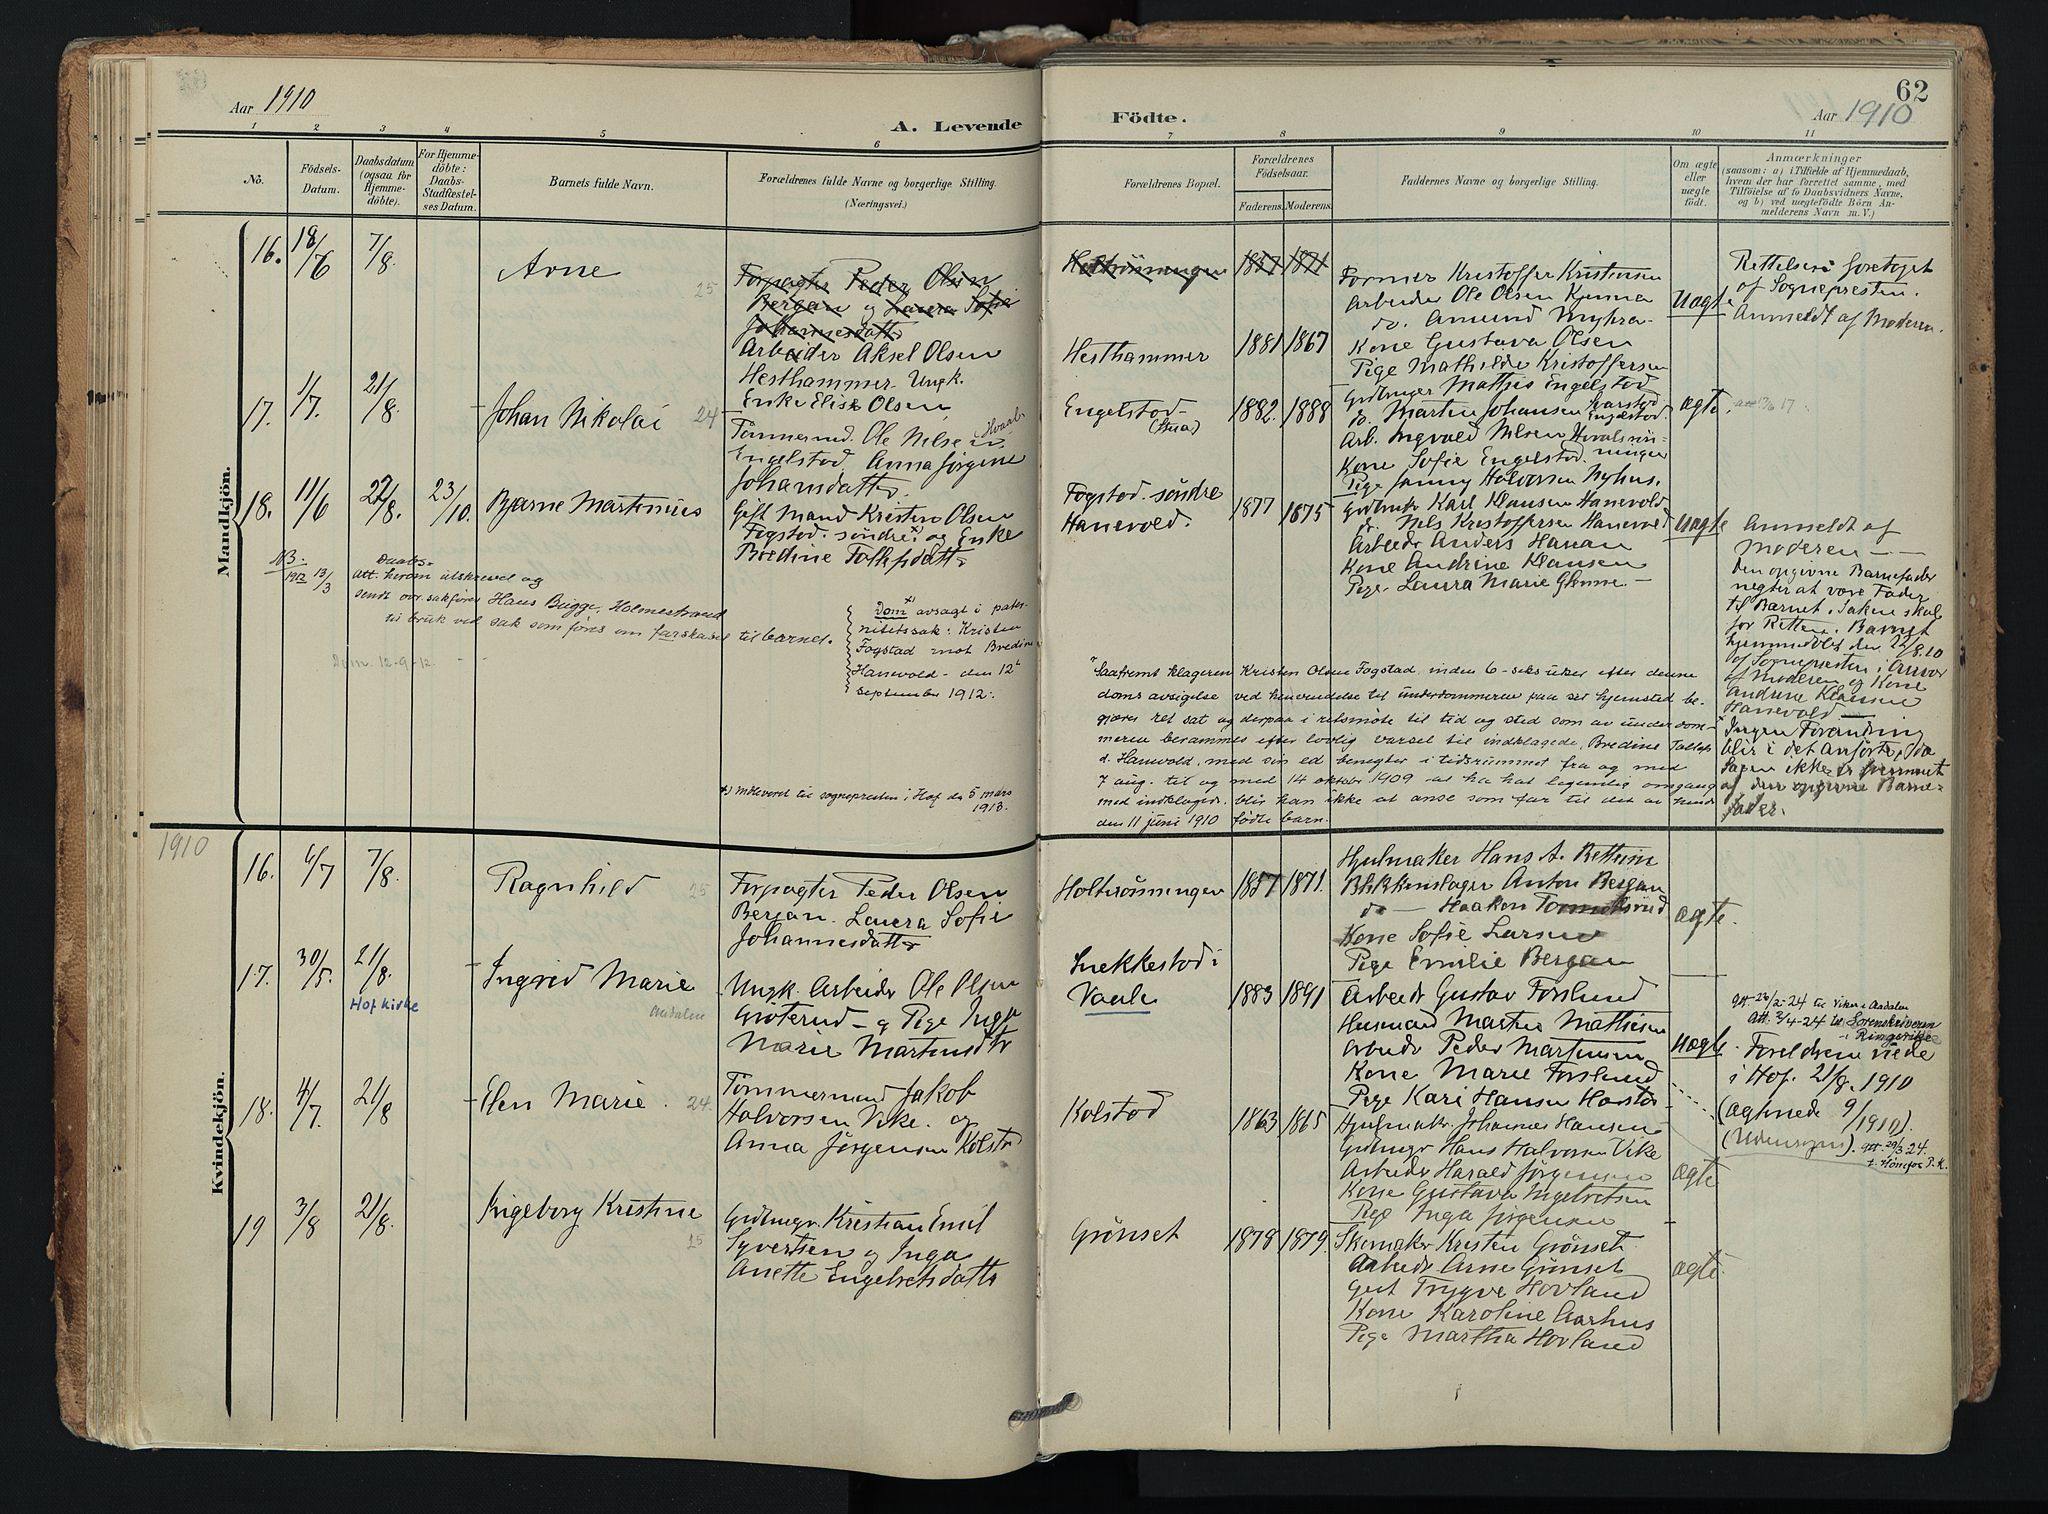 Aar 1910
A. Levende
Födte.
62
Aar 1910
1 2 3 4 5 6 7 8 9 10 11
No.
Födsels-
Datum.
Daabsdatum
(ogsaa for
Hjemme-
döbte).
For Hjemme-
döbte:
Daabs-
Stadfæstel-
ses Datum.
Barnets fulde Navn.
Forældrenes fulde Navne og borgerlige Stilling.
(Næringsvei.)
Forældrenes Bopæl.
Forældrenes
Födselsaar.
Faderens. Moderens.
Faddernes Navne og borgerlige Stilling.
Om ægte
eller
uægte
födt.
Anmærkninger
(saasom: a) i Tilfælde af Hjemmedaab,
hvem der har forrettet samme, med
Tilföielse af to Daabsvidners Navne.
og b) ved uægtefödte Börn An-
melderens Navn m. V.)
Mandkjön.
16. 18/6 7/8 Arne 25
Forpagter Peder Olsen
Bergan og Laura Sofie
Johannesdatter
Arbeider Aksel Olsen
Hesthammer. Ungk.
Enke Elise Olsen
Holtrönningen 1857 1871
Hesthammer 1881 1867
Former Kristoffer Kristensen
Arbeider Ole Olsen
do. Amund Myhra
Kone Gustava Olsen
Pige Mathilde Kristoffersen
Uægte
Rettelser foretaget
af Sognepresten.
Anmeldt af Moderen.
17. 1/7. 21/8. Johan Nikolai 24
Tömmermd. Ole Nilsen
Engelstad. Anna Jörgine
Johansdatter.
Engelstad
(Stua)
1882. 1888
Grdbruger Mathias Engelstad
do. Martin Johansen
Arb. Ingvald Nilsen
Kone Sofie Engelstad.
Pige Jenny Halvorsen Nyhus.
ægte.
18. 11/6 27/8. 23/10. Bjarne Martinius
Gift Mand Kristen Olsen
Fogstad. söndre x) og Enke
Bredine Tollefsdatter
Fogstad. söndre
Hanevold.
1877 1875
Grdbruker Karl Klausen Hanevold
do. Nils Kristoffersen Hanevold
Arbeider Anders Hanan
Kone Andrine Klausen
Pige. Laura Marie Glenne.
Uægte
Anmeldt af
Moderen
Den opgivne Barnefader
negter at være Fader
til Barnet. Saken skal
for Retten. Barnet
hjemmedöbt den 22/8.10
af Sognepresten i Nærvær
af Moderen og Kone
Andrine Klausen
Hanevold
Ingen Forandring
blir i det Anförte, da
Sagen ikke er fremmet
af den opgivne Barne-
fader.
NB. 1912 13/3
Daabs-
att. herom utskrevet og
sendt ovr. sakförer Hans Bugge, Holmestrand
til bruk ved sak som föres om farskapet til barnet.
Dom. 12-9-12.
Dom x) avsagt i pater-
nitetssak: Kristen
Fogstad mot Bredine
Hanevold - den 12te
september 1912.
x) meddelt til sognepresten i Hof den 5 mars
1913.
"Saafremt klageren Kristen Olsen Fogstad, inden 6 - seks uker efter denne
doms avsigelse ved henvendelse til underdommeren paa sit hjemsted be-
gjærer ret sat og derpaa i retsmöte til tid og sted som av underdom-
meren berammes efter lovlig varsel til indklagede, Bredine Tollefs
d. Hanevold, med sin ed benegter i tidsrummet fra og med
7 aug. til og med 14 oktobr 1909 at ha hat legemlig omgang
med indklagede, blir han ikke at anse som far til det av hende
den 11 juni 1910 födte barn.
1910
Kvindekjön.
16. 6/7 7/8. Ragnhild 25
Forpagter Peder Olsen
Bergan. Laura Sofie
Johannesdatter
Holtrönningen 1857 1871.
Hjulmaker Hans A. Bettum
Blikkenslager Anton Bergan
do - Haakon
Kone Sofie Larsen
Pige Emilie Bergan
ægte.
17. 30/5. 21/8. Ingrid Marie
Hof kirke
Aadalen
Ungk. Arbeider Ole Olsen
Groterud - og Pige Inga
Marie Martinsdtr
Snekkestad i
Vaale
1883 1891
Arbeider Gustav Forslund
Husmand Martin Mathisen
Arbeider Peder Martinsen
Kone Marie Forslund
Pige Kari Hansen
Uægte.
Att. 26/2-24 til Viker i Aadalen
Att. 3/4-24 til Sorenskriveren
i Ringerike
Foreldrene viede
i Hof. 21/8. 1910
(Ægtviede 9/1910).
(Udensogns). Att. 29/3 24.
t. Hönefos P.K.
18. 4/7. 21/8 Elen Marie. 24.
Tömmermand Jakob
Halvorsen Vike. og
Anna Jörgensen Kolstad
Kolstad
1863 1865
Hjulmaker Johannes Hansen
Grdbrugr Hans Halvorsen Vike
Arbeider Harald Jörgensen
Kone Gustava Ingebretsen
Pige Inga Jörgensen
ægte
19 3/8 21/8. Ingeborg Kristine 25
Grdbrugr. Kristian Emil
Syvertsen og Inga
Anette Engebretsdatter
Grönset
1878 1879.
Skomaker Kristen Grönset
Arbeider Arne Grönset
Gut Trygve Hovland
Kone Karoline Aarhus
Pige Martha Hovland
ægte.